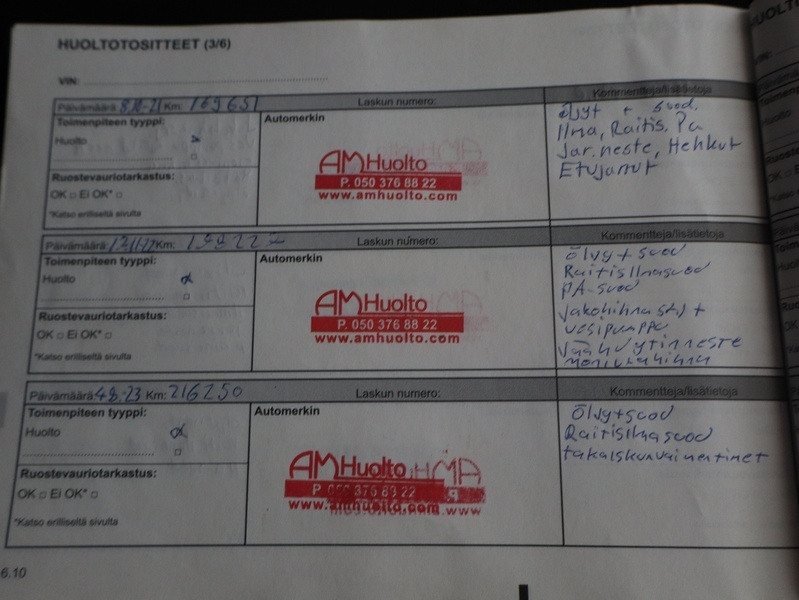 HUOLTOTOSITTEET (3/6)
VIN:
Päivämäärä: Km: 169651 Laskun numero: Kommentteja/lisätietoja
Toimenpiteen tyyppi:
Huolto
Ruostevauriotarkastus:
OK □ Ei OK* □
*Katso erilliseltä sivulta
Automerkin
AM Huolto
P. 050 376 88 22
www.amhuolto.com
Öljyt + suod.
Ilma, Raitis, Pa
Jar.neste, Hehkut
Etujarrut
Päivämäärä: Km: Laskun numero: Kommentteja/lisätietoja
Toimenpiteen tyyppi:
Huolto
Ruostevauriotarkastus:
OK □ Ei OK* □
*Katso erilliseltä sivulta
Automerkin
AM Huolto
P. 050 376 88 22
www.amhuolto.com
Öljy+suod
Raitisilmasuod
PA-suod
Jakohihna +
vesipumppu
Jäähdytinneste
moniurahihna
Päivämäärä: 4.8.23 Km: 216250 Laskun numero: Kommentteja/lisätietoja
Toimenpiteen tyyppi:
Huolto
Ruostevauriotarkastus:
OK □ Ei OK* □
*Katso erilliseltä sivulta
Automerkin
AM Huolto
P. 050 376 88 22
www.amhuolto.com
Öljy+suod
Raitisilmasuod
takaiskunvaimentimet
6.10